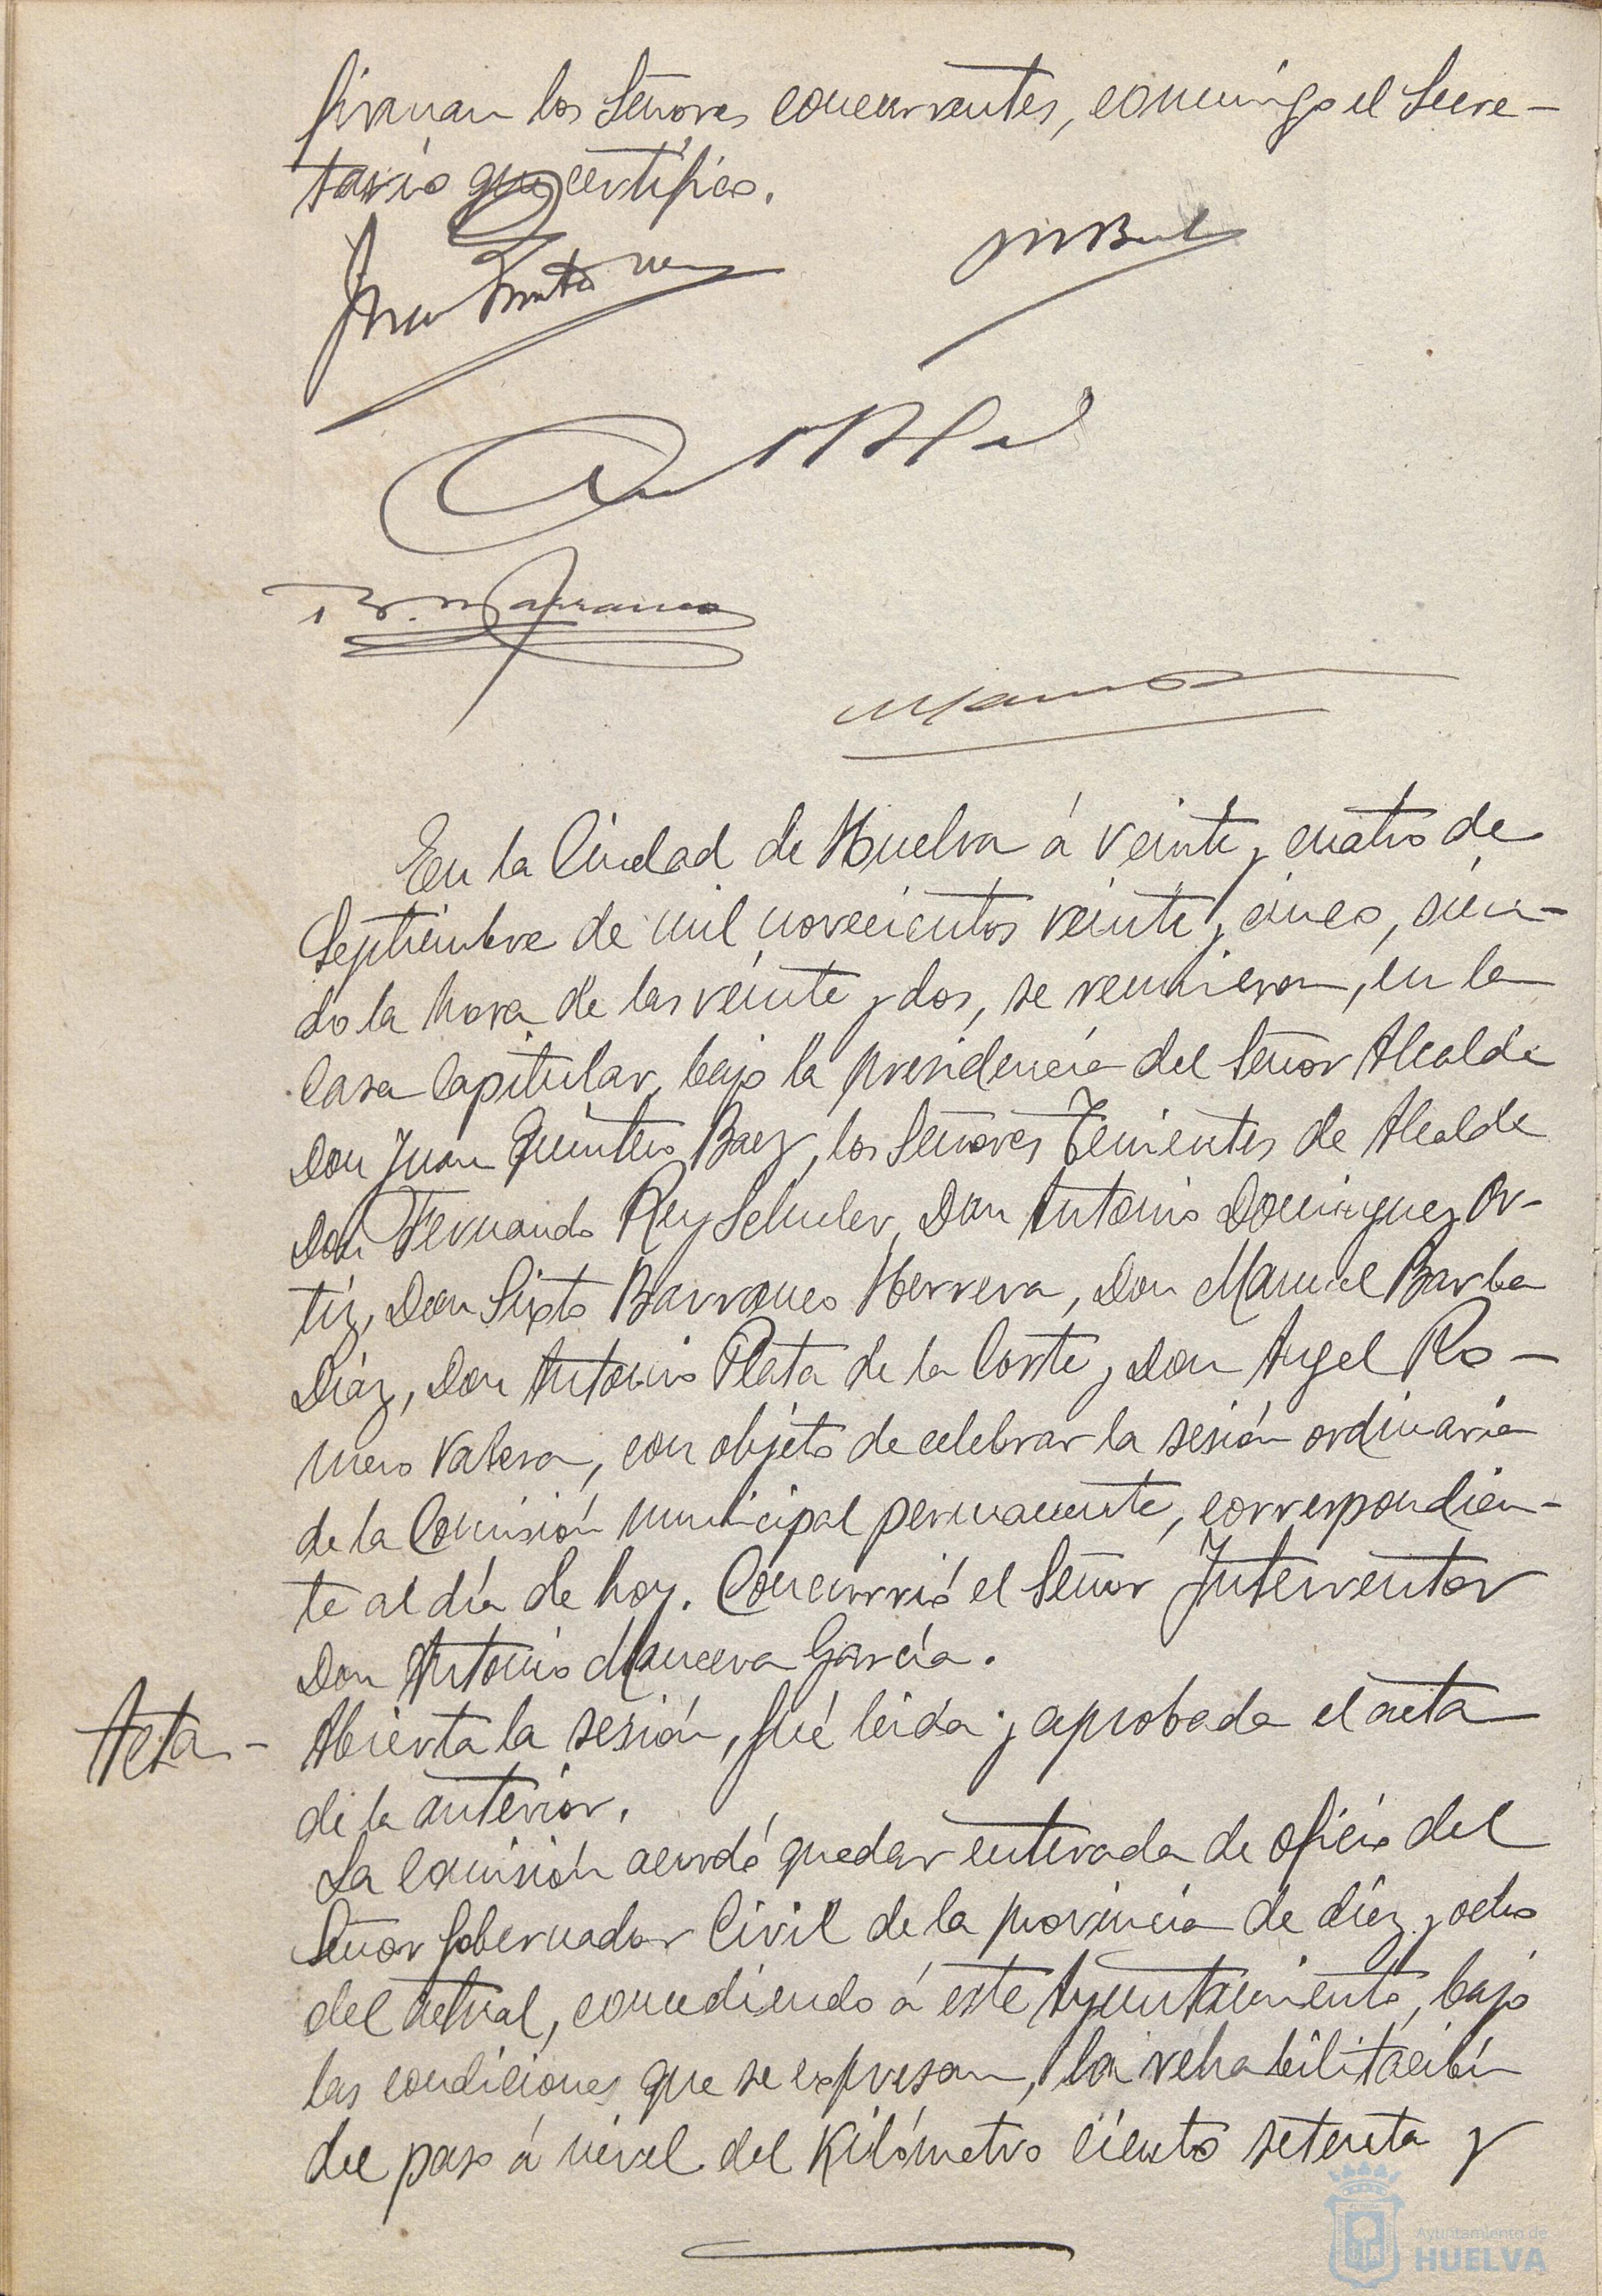 firman los Señores concurrentes, conmigo el Secre-
tario que certifico.
En la Ciudad de Huelva á veinte y cuatro de
Septiembre de mil novecientos veinte y cinco, sien-
do la hora de las veinte y dos, se reunieron, en la
Casa Capitular, bajo la presidencia del Señor Alcalde
Don Juan Quintero Baez, los Señores Tenientes de Alcalde
Don Fernando Rey Schuler, Don Antonio Dominguez Or-
tíz, Don Sixto Barranco Herrera, Don Manuel Barba
Díaz, Don Antonio Plata de la Corte y Don Angel Ro-
mero Valera, con objeto de celebrar la sesión ordinaria
de la Comisión municipal permanente, correspondien-
te al día de hoy. Concurrió el Señor Interventor
Don Antonio Mancera García.
Acta-
Abierta la sesión, fué leida y aprobada el acta
de la anterior.
La comisión acordó quedar enterada de oficio del
Señor Gobernador Civil de la provincia de diez y ocho
del actual, concediendo á este Ayuntamiento, bajo
las condiciones que se expresan, la rehabilitación
del paso á nivel del Kilómetro ciento setenta y
Ayuntamiento de
HUELVA